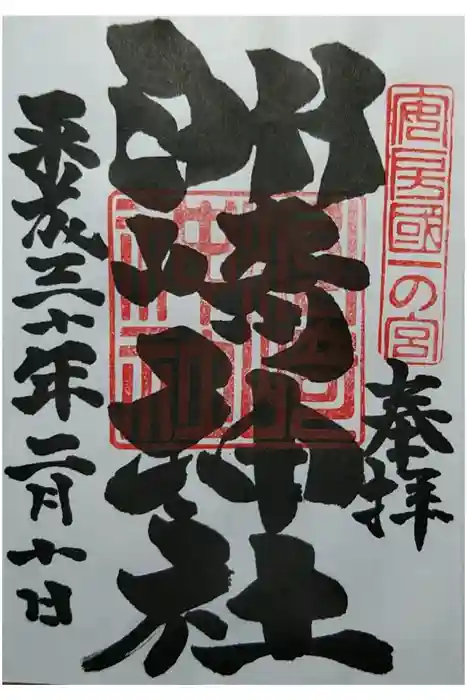 安房國一の宮
奉拝
洲﨑神社
平成三十年二月十日